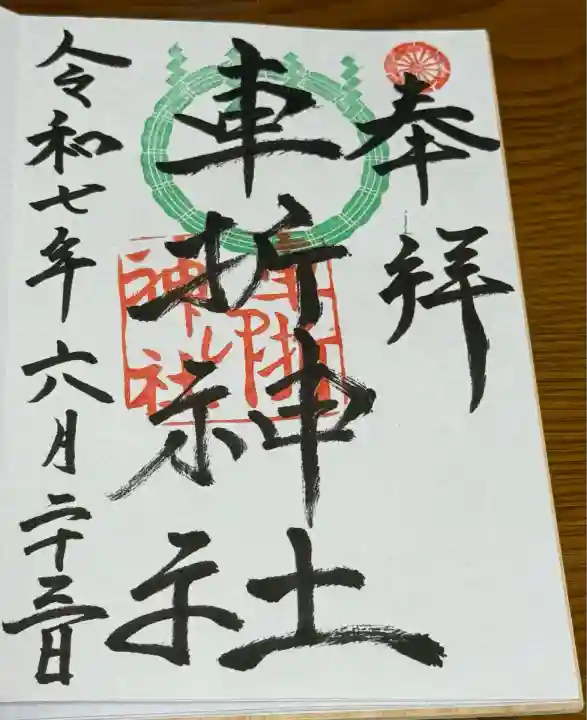 奉拝
車折神社
車折
神社
令和七年六月二十三日